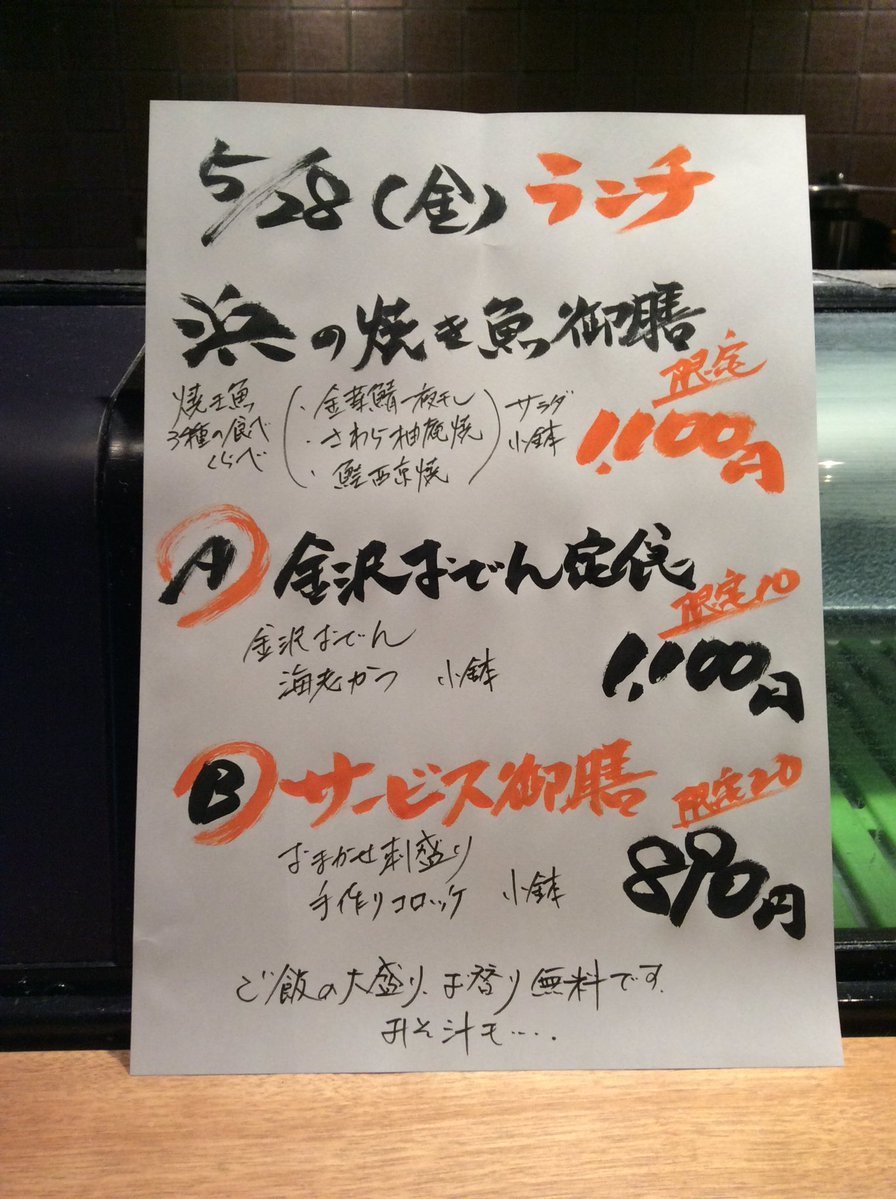 5/28(金) ランチ
浜の焼き魚御膳
限定
焼き魚
3種の食べ
くらべ
・金華鯖一夜干し
・さわら柚庵焼
・鮭西京焼
サラダ
小鉢
1,100円
A 金沢おでん定食
限定10
金沢おでん
海老かつ 小鉢
1,100円
B サービス御膳
限定20
おまかせ刺盛り
手作りコロッケ 小鉢
890円
ご飯の大盛り、お替り無料です、
みそ汁も・・・.